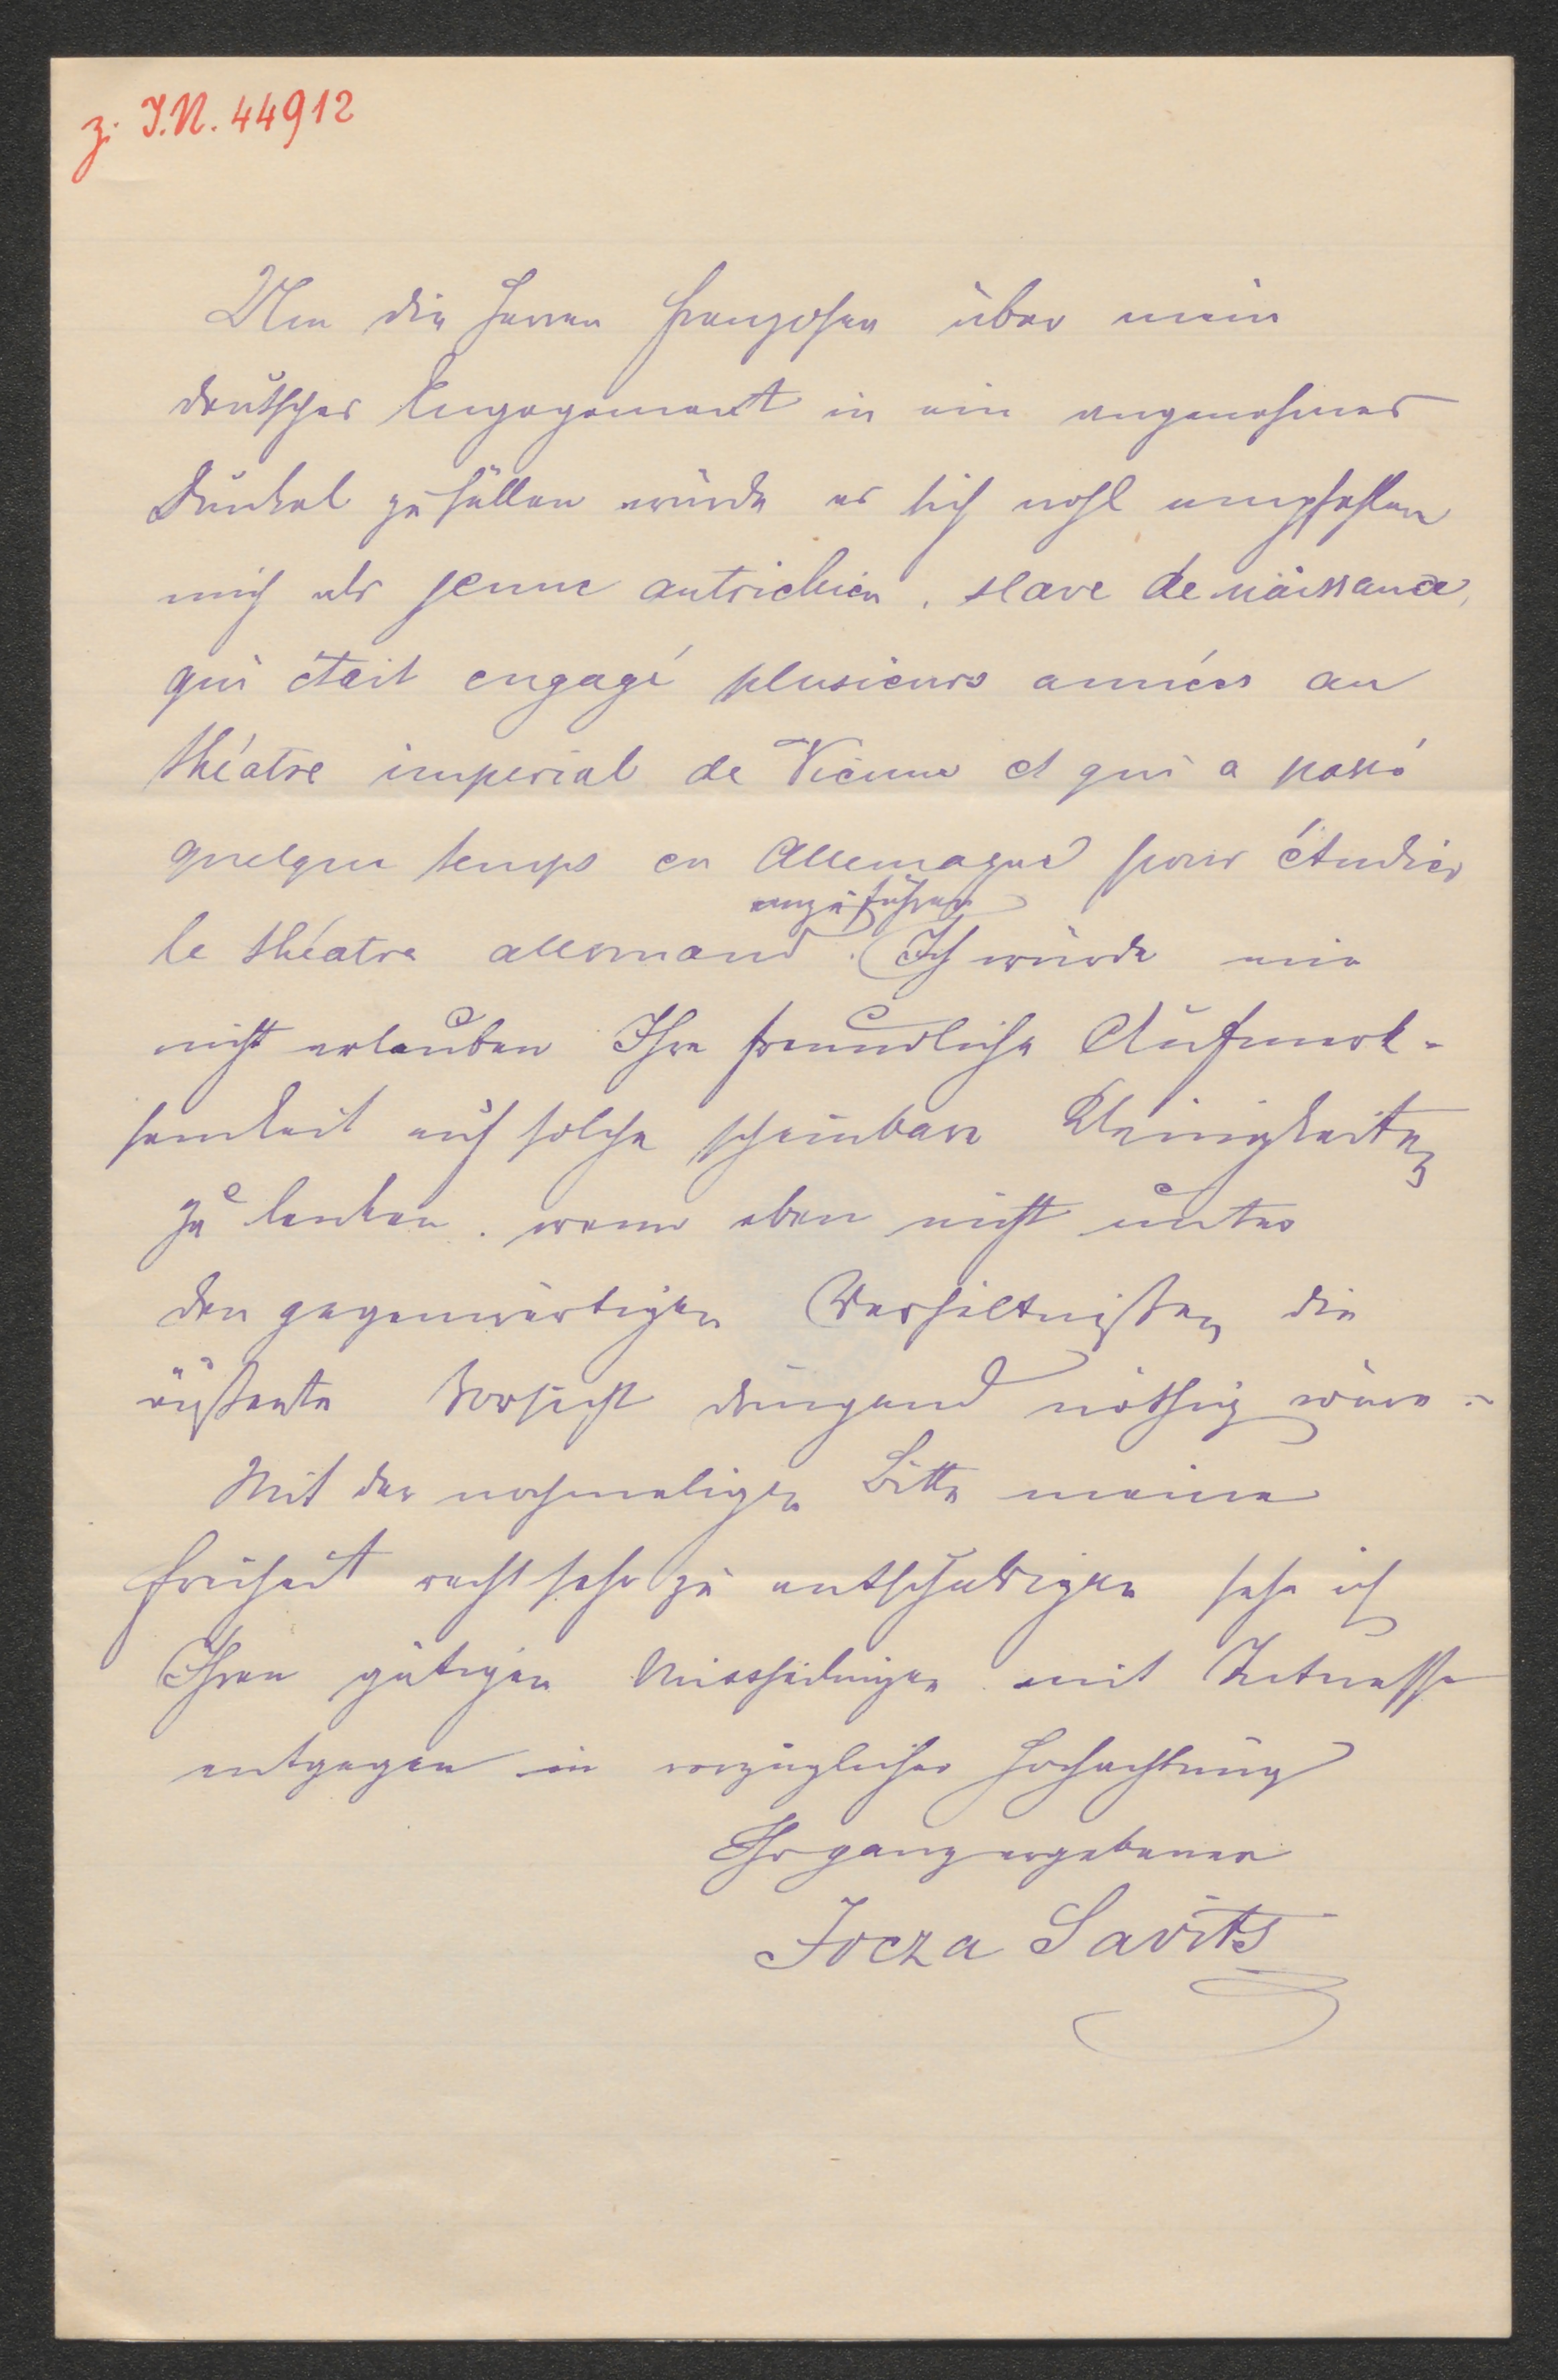 z. I.N. 44912
Um die Herren Franzosen über mein
deutsches Engagement in ein angenehmes
Dunkel zu hüllen würde es sich wohl empfehlen
mich als jeune autrichien, slave de naissance,
qui était engagé plusieurs années au
théatre imperial de Vienne et qui a passé
quelque temps en Allemagne pour étudier
anzuführen
le théatre allemand. Ich würde mir
nicht erlauben Ihre freundliche Aufmerk-
samkeit auf solche scheinbare Kleinigkeiten
zu lenken, wenn eben nicht unter
den gegenwärtigen Verhältnißen die
äußerste Vorsicht dringend nöthig wäre. -
Mit der nochmaligen Bitte meine
Freiheit recht sehr zu entschuldigen sehe ich
Ihren gütigen Mittheilungen mit Interesse
entgegen in vorzüglicher Hochachtung
Ihr ganz ergebener
Jocza Savits